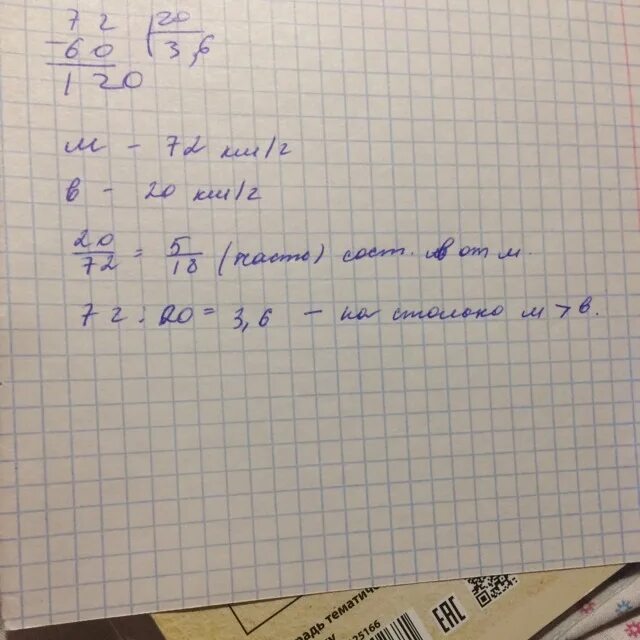 72 | 20
-60 3,6
120
м - 72 км/г
в - 20 км/г
20/72 = 5/18 (часть) сост. в от м.
72 : 20 = 3,6 - на столоко м > в.
радь тематичес
25166
ЕАС